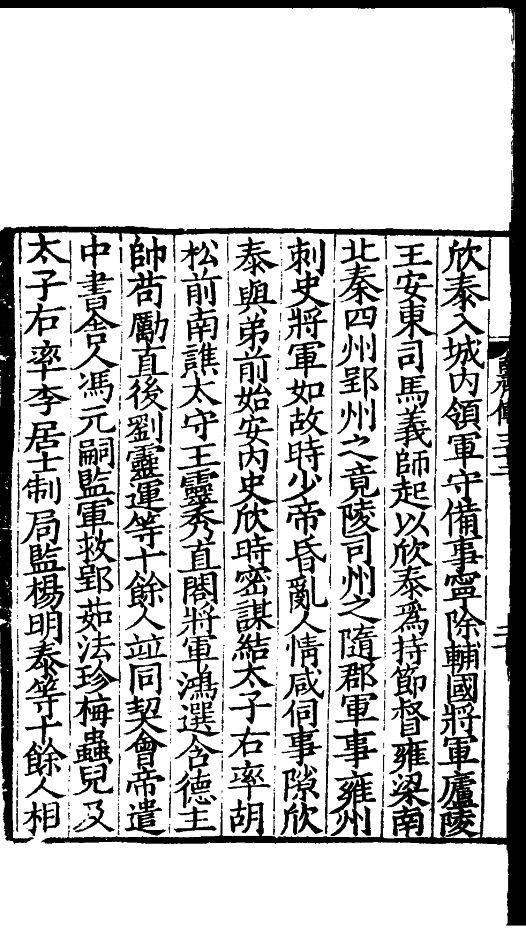 欣泰入城内領軍守備事寧除輔國將軍廬陵
王安東司馬義師起以欣泰爲持節督雍梁南
北秦四州郢州之竟陵司州之隨郡軍事雍州
刺史將軍如故時少帝昏亂人情咸伺事隙欣
泰與弟前始安内史欣時密謀結太子右率胡
松前南譙太守王靈秀直閤將軍鴻選含德主
帥茍勵直後劉靈運等十餘人並同契會帝遣
中書舍人馮元嗣監軍救郢茹法珍梅蟲兒及
太子右率李居士制局監楊明泰等十餘人相